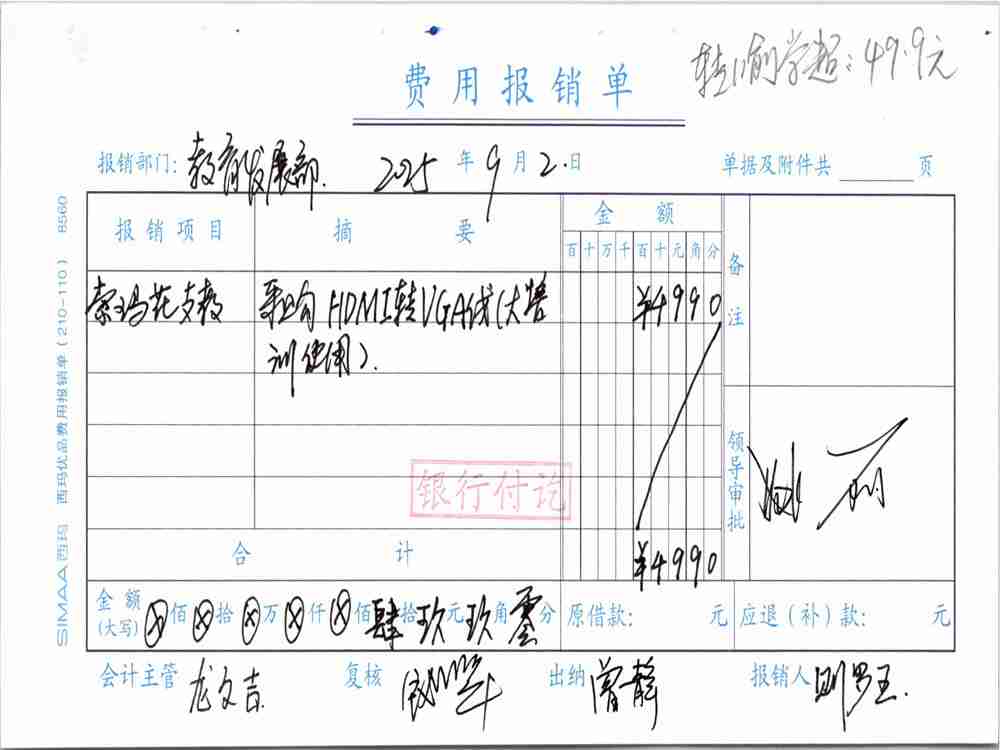 转喻学超:49.9元
费用报销单
报销部门: 教育发展部. 2025 年 9 月 2. 日 单据及附件共 页
报销项目 摘 要 金 额 备注
百 十 万 千 百 十 元 角 分
索玛花支教 HDMI转VGA线(大培 ¥4990
训使用).
银行付讫
领导审批
合 计 ¥4990
金额(大写) ⊗佰⊗拾⊗万⊗仟⊗佰肆拾玖元玖角零分 原借款: 元 应退(补)款: 元
会计主管 龙文吉 复核 出纳 曾静 报销人
SIMAA西玛 西玛优品费用报销单(210-110) 8560